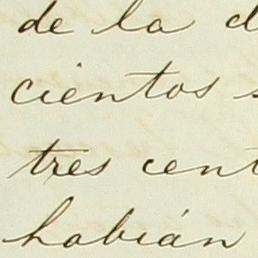 de la d
cientos s
tres cent
habián